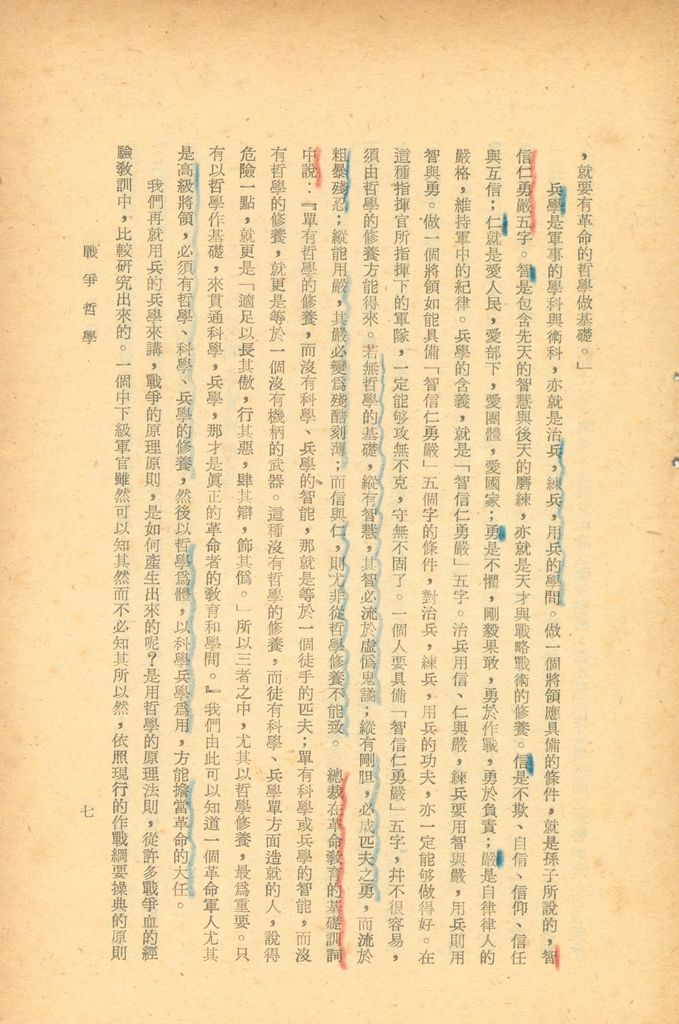 ，就要有革命的哲學做基礎。」
兵學是軍事的學科與術科，亦就是治兵，練兵，用兵的學問。做一個將領應具備的條件，就是孫子所說的，智
信仁勇嚴五字。智是包含先天的智慧與後天的磨練，亦就是天才與戰略戰術的修養。信是不欺、自信、信仰、信任
與互信；仁就是愛人民，愛部下，愛團體，愛國家；勇是不懼，剛毅果敢，勇於作戰，勇於負責；嚴是自律律人的
嚴格，維持軍中的紀律。兵學的含義，就是「智信仁勇嚴」五字。治兵用信、仁與嚴，練兵要用智與嚴，用兵則用
智與勇。做一個將領如能具備「智信仁勇嚴」五個字的條件，對治兵，練兵，用兵的功夫，亦一定能够做得好。在
這種指揮官所指揮下的軍隊，一定能够攻無不克，守無不固了。一個人要具備「智信仁勇嚴」五字，并不很容易，
須由哲學的修養方能得來。若無哲學的基礎，縱有智慧，其智必流於虛僞鬼譎；縱有剛胆，必成匹夫之勇，而流於
粗暴殘忍；縱能用嚴，其嚴必變爲殘酷刻薄；而信與仁，則尤非從哲學修養不能致。　總裁在革命教育的基礎訓詞
中說：『單有哲學的修養，而沒有科學、兵學的智能，那就是等於一個徒手的匹夫；單有科學或兵學的智能，而沒
有哲學的修養，就更是等於一個沒有機柄的武器。這種沒有哲學的修養，而徒有科學、兵學單方面造就的人，說得
危險一點，就更是「適足以長其傲，行其惡，肆其辯，飾其僞。」所以三者之中，尤其以哲學修養，最爲重要。只
有以哲學作基礎，來貫通科學，兵學，那才是眞正的革命者的教育和學問。』我們由此可以知道一個革命軍人尤其
是高級將領，必須有哲學、科學、兵學的修養，然後以哲學爲體，以科學兵學爲用，方能擔當革命的大任。
我們再就用兵的兵學來講，戰爭的原理原則，是如何產生出來的呢？是用哲學的原理法則，從許多戰爭血的經
驗教訓中，比較研究出來的。一個中下級軍官雖然可以知其然而不必知其所以然，依照現行的作戰綱要操典的原則
戰爭哲學
七